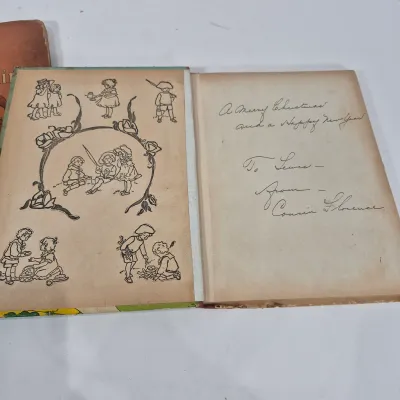 A Merry Christmas
and a Happy New Year
To Lewis –
From –
Cousin Florence